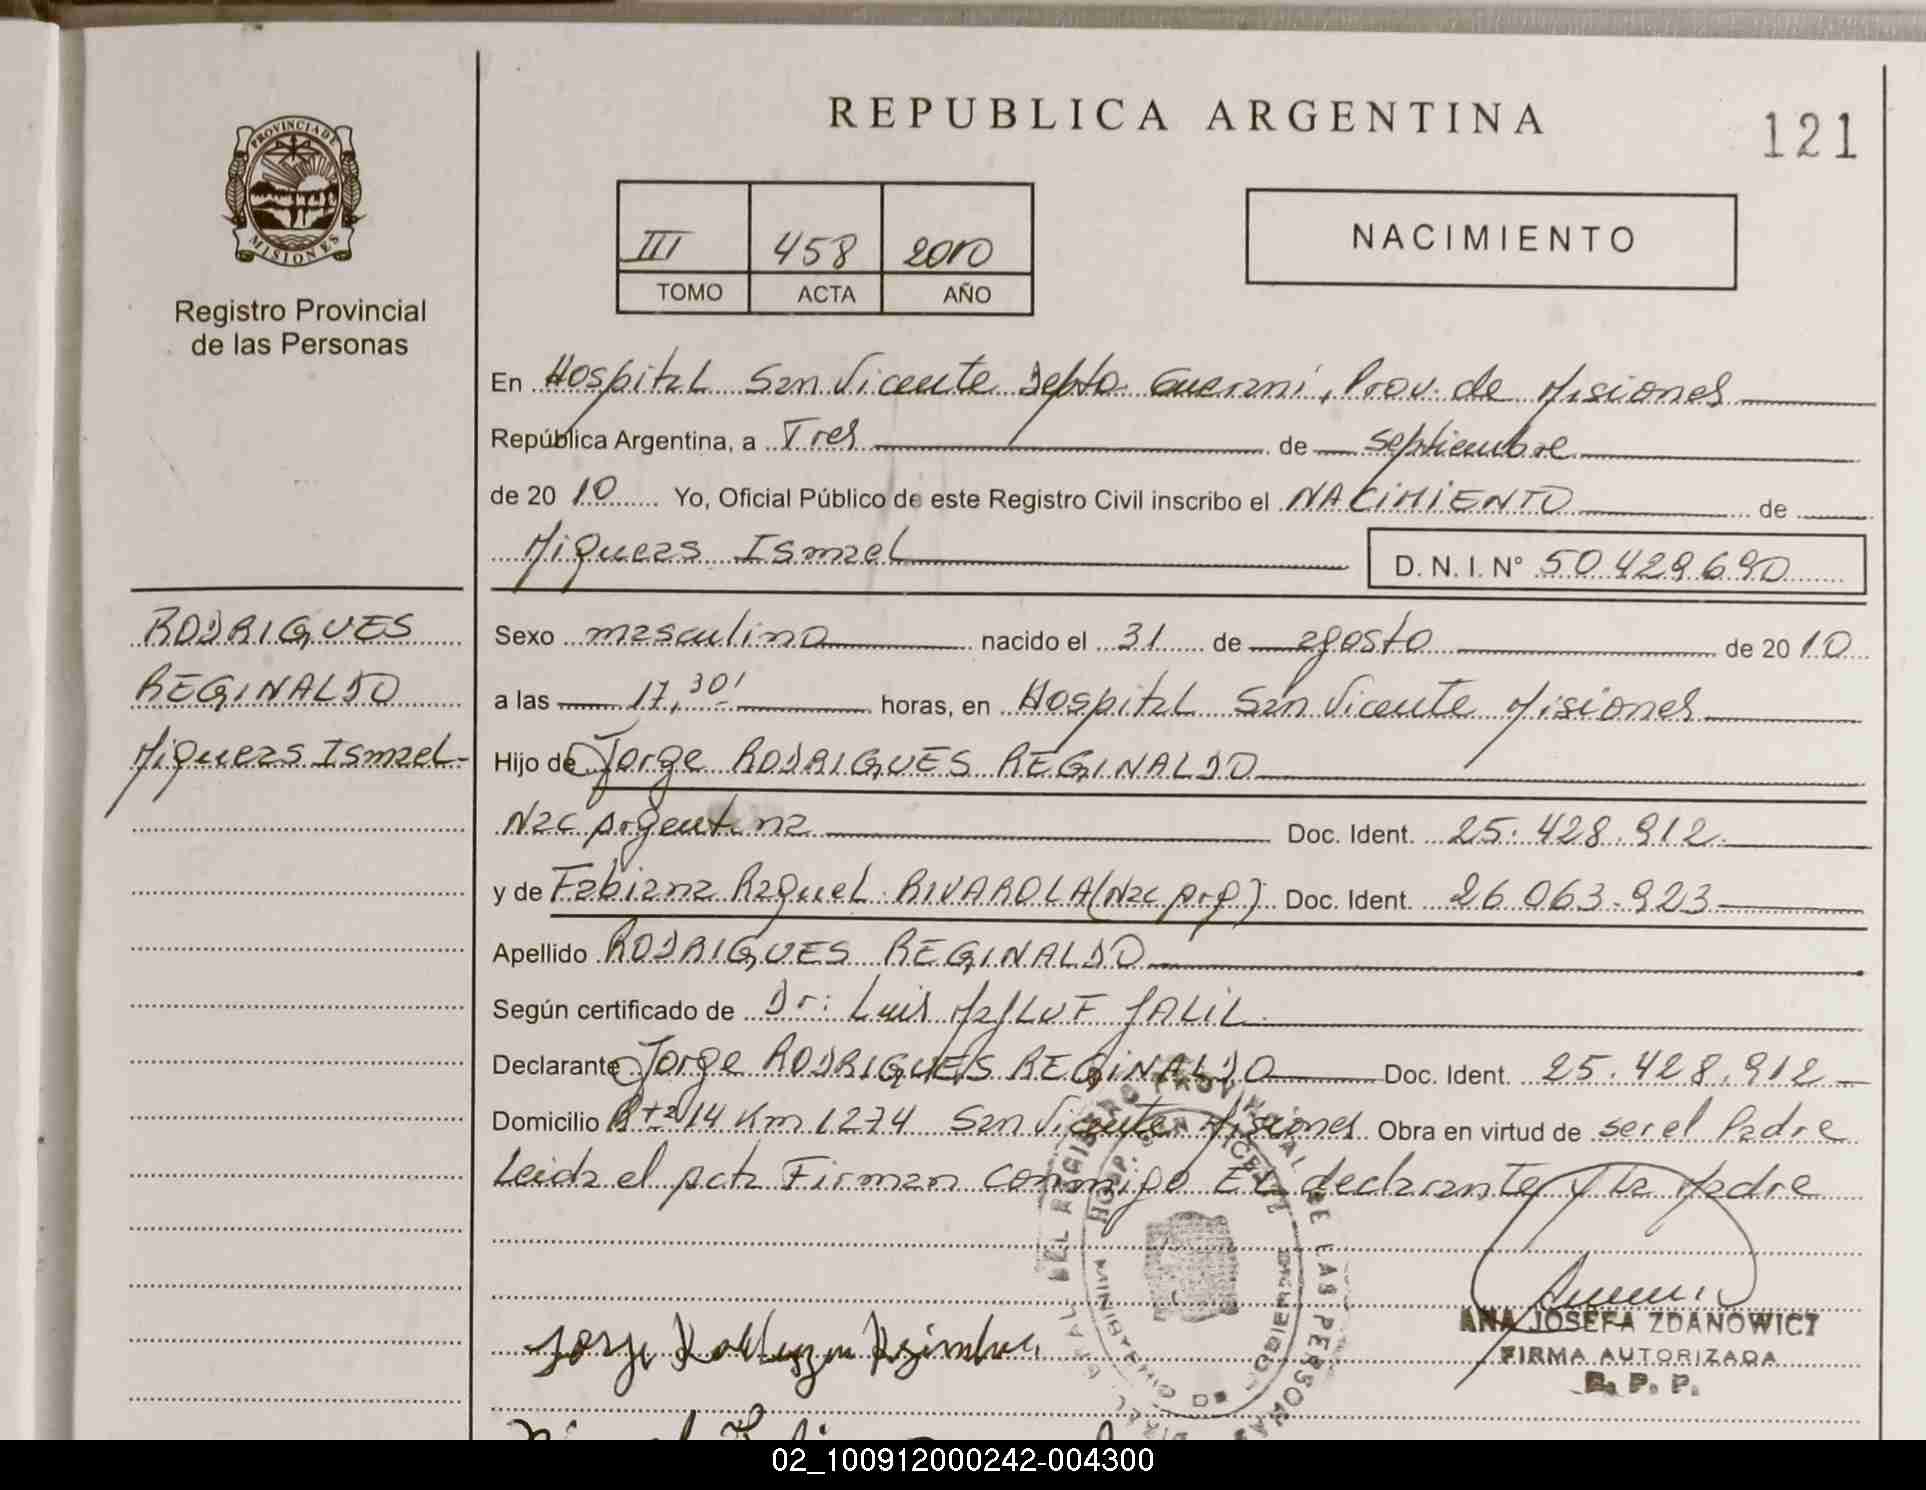 REPUBLICA ARGENTINA
121
PROVINCIA DE
MISIONES
Registro Provincial
de las Personas
III 458 2010
TOMO ACTA AÑO
NACIMIENTO
En Hospital San Vicente Depto. Guarani, Prov. de Misiones
República Argentina, a Tres de Septiembre
de 2010 Yo, Oficial Público de este Registro Civil inscribo el NACIMIENTO de
Miqueas Ismael
D.N.I.N° 50.429.690
RODRIGUES
REGINALDO
Miqueas Ismael
Sexo masculino nacido el 31 de agosto de 2010
a las 17,30' horas, en Hospital San Vicente Misiones
Hijo de Jorge RODRIGUES REGINALDO
Nac Argentina Doc. Ident. 25.428.912
y de Fabiana Raquel RIVAROLA (Nac Arg) Doc. Ident. 26.063.923
Apellido RODRIGUES REGINALDO
Según certificado de Dr: Luis JALIL
Declarante Jorge RODRIGUES REGINALDO Doc. Ident. 25.428.912
Domicilio Rta 14 Km 1274 San Vicente Misiones Obra en virtud de ser el Padre
Leida el acta Firman conmigo EL declarante y la Madre
REGISTRO PROVINCIAL DE LAS PERSONAS
HOSP. SAN VICENTE
MINISTERIO DE GOBIERNO
ANA JOSEFA ZDANOWICZ
FIRMA AUTORIZADA
R. P. P.
Jorge
02_100912000242-004300